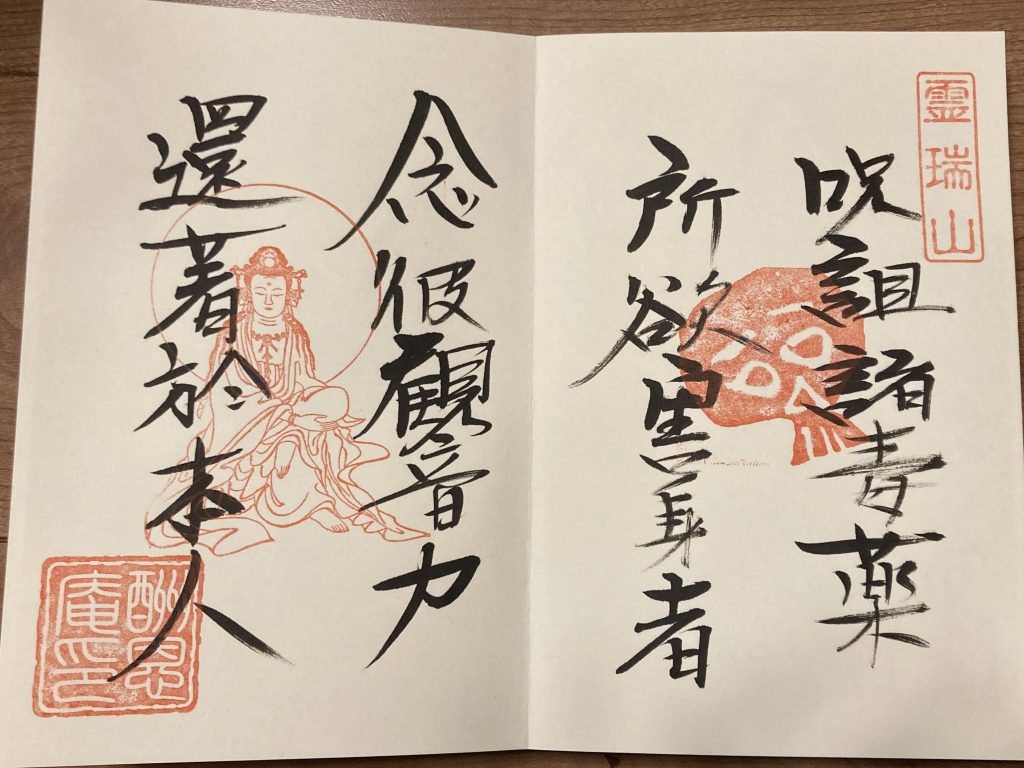 霊瑞山
呪詛諸毒薬
所欲害身者
念彼観音力
還著於本人
酬恩
庵印